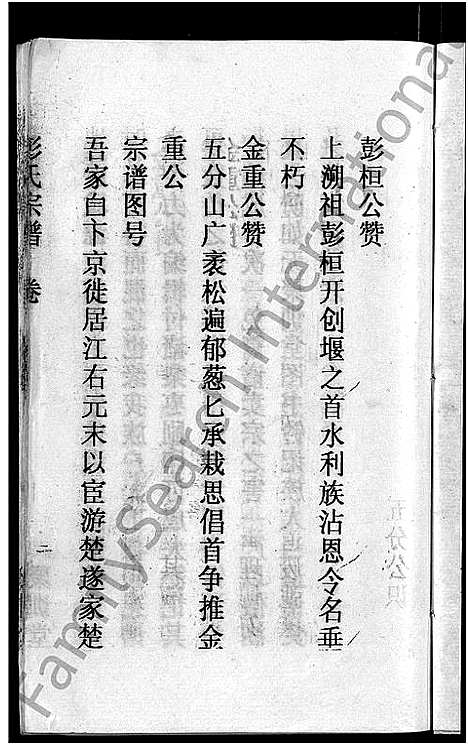 彭桓公赞
上溯祖彭桓开创堰之首水利族沾恩令名垂
不朽
金重公赞
五分山广袤松遍郁葱匕承栽思倡首争推金
重公
宗谱图号
吾家自卞京徙居江右元末以宦游楚遂家楚
彭氏宗谱 卷
二
FamilySearch International